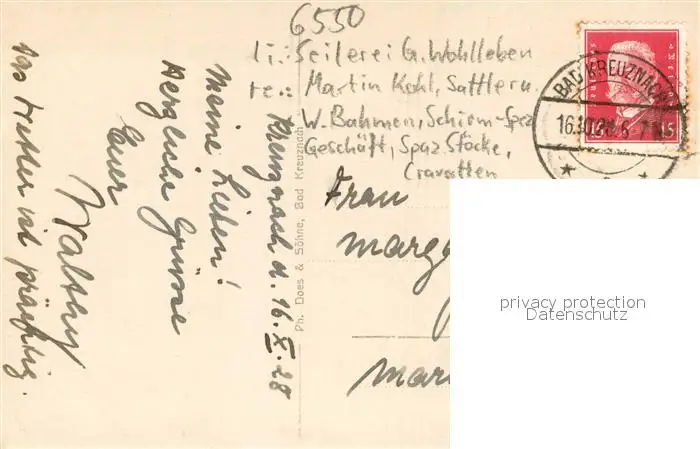 6550
li.: Seilerei G. Wohlleben
re.: Martin Kohl, Sattlern.
W. Bahmen, Schirm-Spaz
Geschäft, Spaz Stöcke,
Cravatten
BAD KREUZNACH
15
Kreuznach d. 16. X. 28
Meine Lieben!
Herzliche Grüsse
Euer
Walther
Das Wetter ist prächtig.
Ph. Does & Söhne, Bad Kreuznach
Frau
privacy protection
Datenschutz